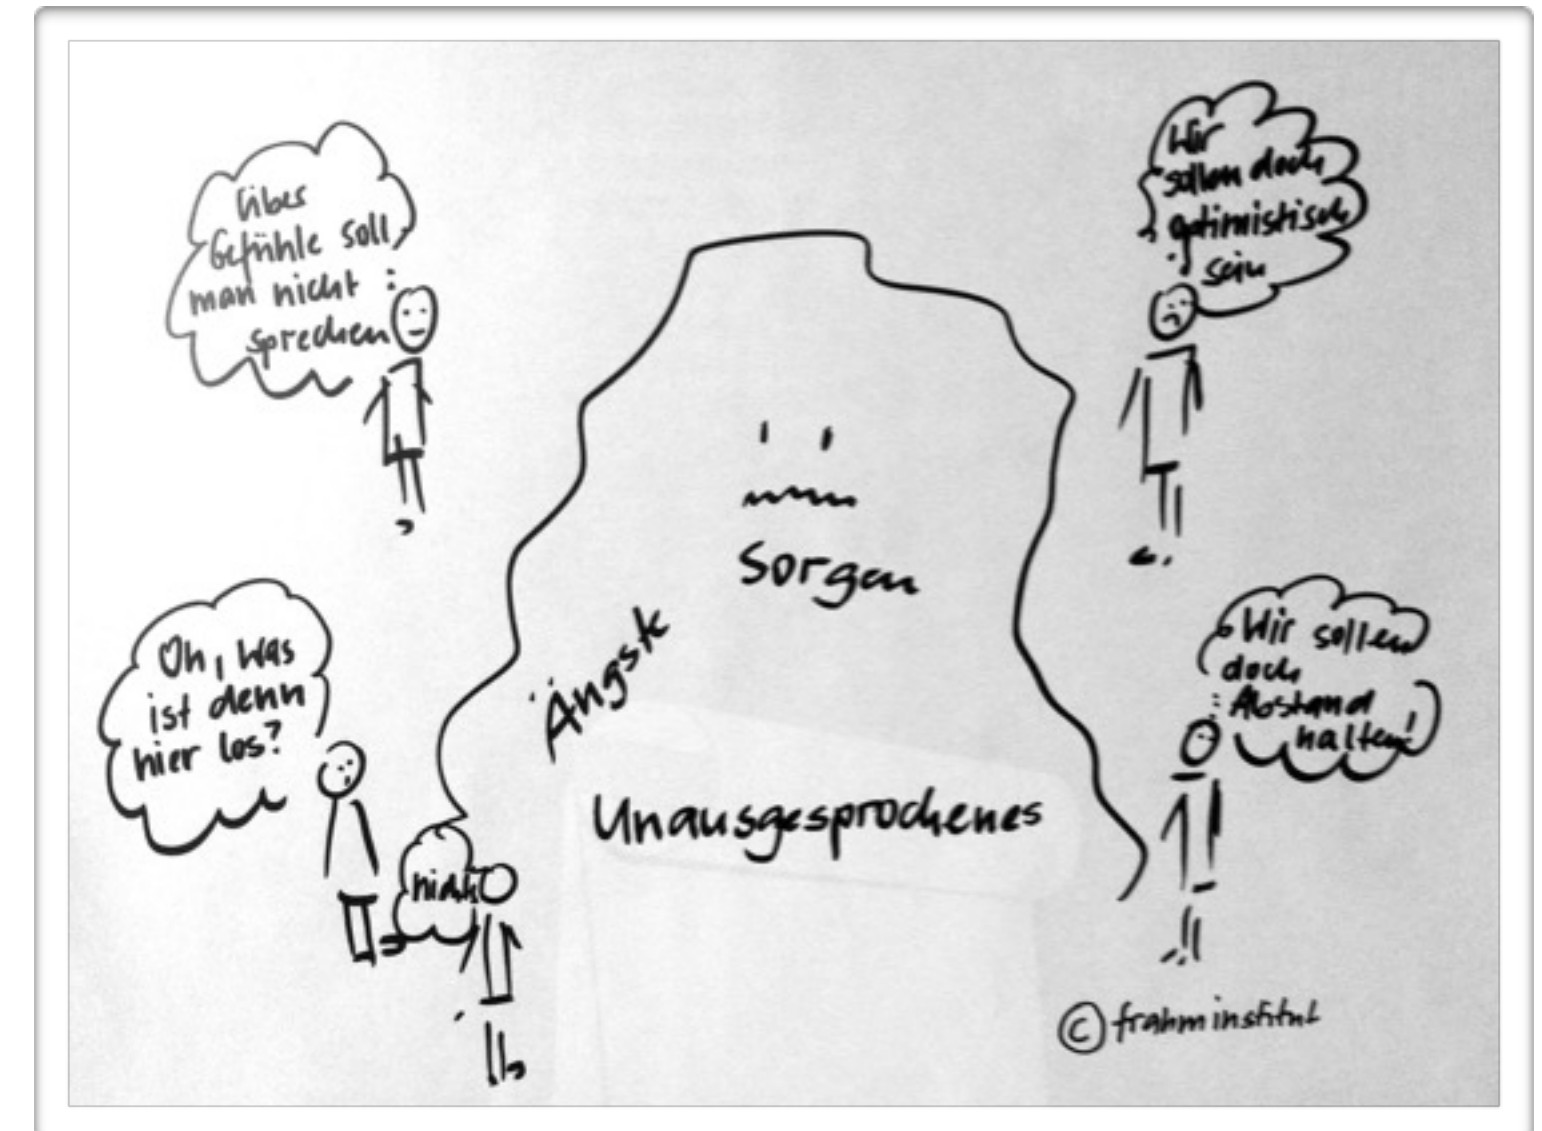 Über
Gefühle soll
man nicht
sprechen
Wir
sollen doch
optimistisch
sein
Sorgen
Ängste
Unausgesprochenes
Oh, was
ist denn
hier los?
Wir sollen
doch
Abstand
halten!
© frahminstitut